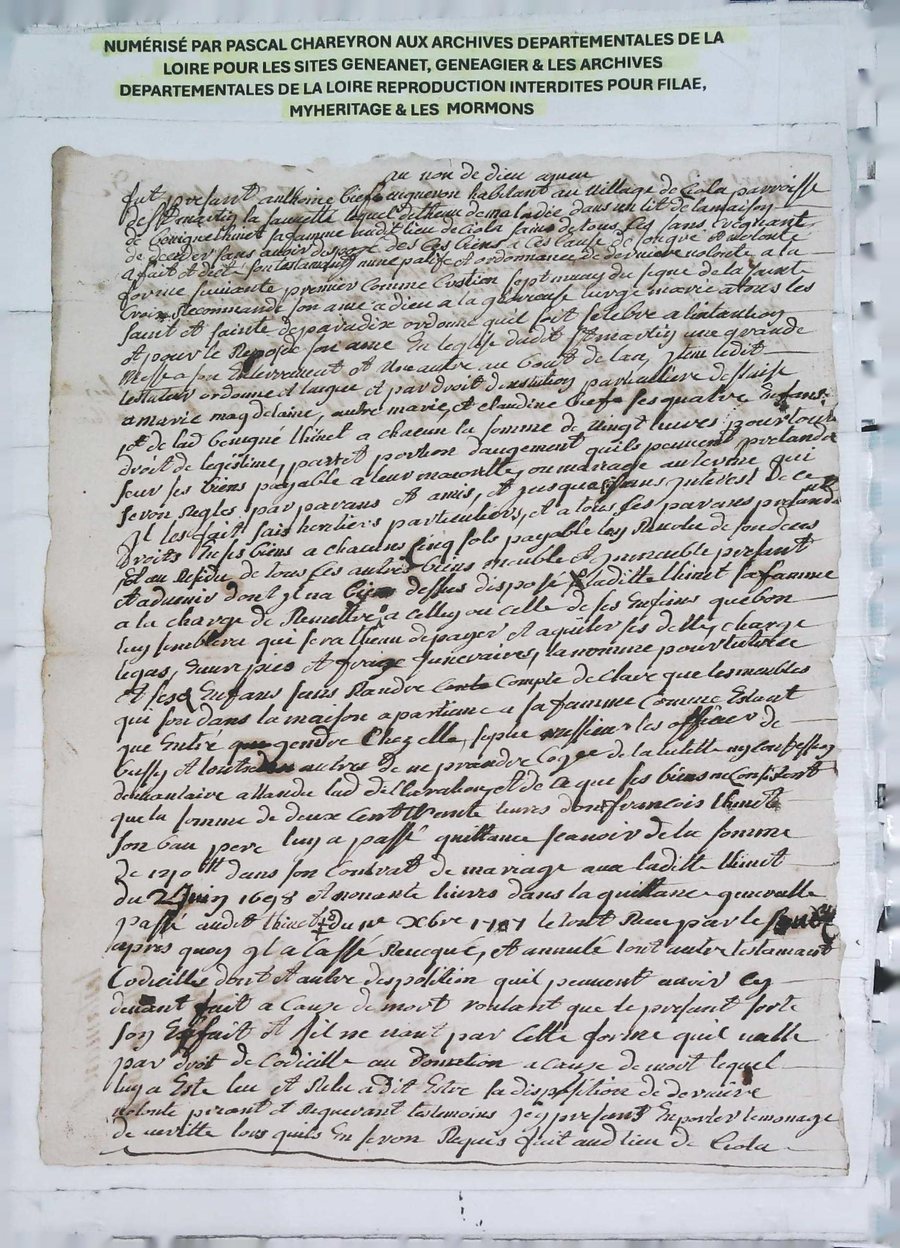 NUMÉRISÉ PAR PASCAL CHAREYRON AUX ARCHIVES DEPARTEMENTALES DE LA
LOIRE POUR LES SITES GENEANET, GENEAGIER & LES ARCHIVES
DEPARTEMENTALES DE LA LOIRE REPRODUCTION INTERDITES POUR FILAE,
MYHERITAGE & LES MORMONS
au non de dieu amen
fut presant anthoine vigneron habitant au village de Ciola parroisse
de St martin la sauvetté lequel dethenu de maladie dans un lit de lamaison
de benigne thinet sa famme audit lieu de Ciola sains de tous ses sans
de deceder sans avoir disposé des ces biens a ces cause de son gré
a fait et dict son testamant nuncupatif et ordonnance de derniere volonté a la
forme suivante premier comme crétien sest muny du signe de la sainte
Croix Recommandé son ame a dieu a la vierge marie a tous les
saint et sainte de paradix ordonne quil soit selebré a lintantion
et pour le Repos de son ame En leglise dudit St martin une grande
Messe a son Enterrement et Une autre au bout de lan, ledit
testateur ordonne et legue et par droit dinstitution particulliere
a marie magdelaine, autre marie, et claudine ses quatre Enfans
et de lad benigne thinet a chacun la somme de vingt livres pour tout
droit de legitime, part et portion daugement quils peuvent pretandre
sur ses biens payable a leur majorité, ou mariage au terme qui
seron Regles par parans et amis, et jusque sans interest de ce
Il les fait hertiers particuliers, et a tous ses parans pretandant
Droits En ses biens a chacuns cinq sols payable
Et au Residu de tous ces autres biens meuble et inmeuble presant
et advenir dont il na bien dessus disposé laditte thinet sa famme
a la charge de Remettre a celluy ou celle de ses Enfans que bon
luy semblera qui sera theau de payer et aquiter ses dettes, charge
legas, et fraix funeraires, la nomme pour tutrice
et ses Enfans sans Randre Compte de clare que les meubles
qui son dans la maison apartiene a sa famme Comme Estant
que Entré gendre Chez elle, suplie messieurs les officier de
bussy et tout autres de ne prandre de la tutelle ny
attandu lad declaration, et de ce que ses biens ne Consistent
que la somme de deux Cent trante livres dont francois thinet
son bau pere luy a passé quittance seavoir de la somme
de dans son Contrat de mariage avec laditte thinet
du 2 Juin 1698 et nonante livres dans la quittance generalle
passé audit thinet du Xbre 1707 le tout Receu par le
apres quoy il a Cassé Revoqué, et annulé tout autre testamant
Codicilles dont et autre disposition quil peuvent avoir cy
devant fait a Cauze de mort voulant que le presant sorte
son Effait et sil ne vaut par Cette forme quil valle
par droit de Codicille ou Donation a cauze de mort lequel
luy a Esté leu et Relu a dit Estre sa disposition de derniere
volonté priant et Requerant tesmoins icy presant En porter temonage
de veritté tous quils En seron Requis fait aud lieu de Ciola